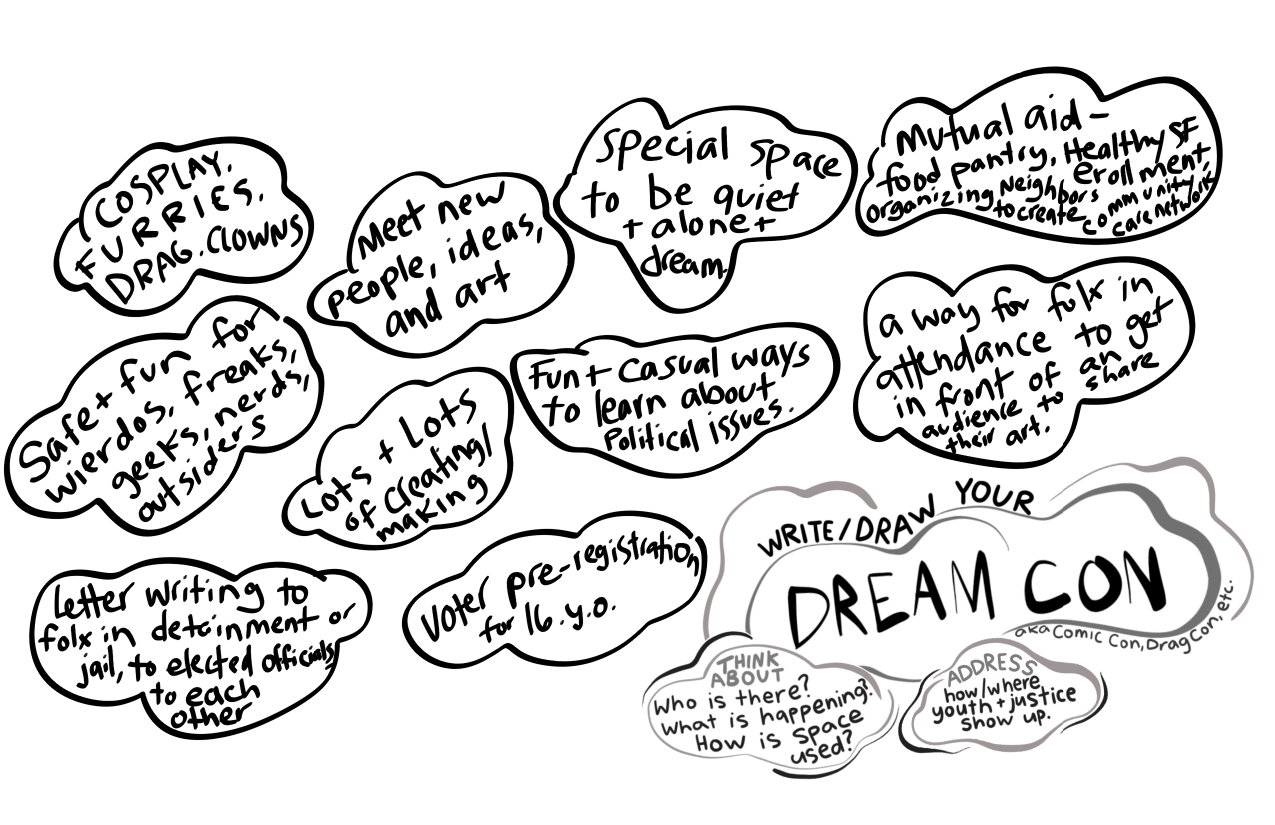 COSPLAY.
FURRIES.
DRAG. CLOWNS
Meet new
people, ideas,
and art
special space
to be quiet
+ alone +
dream.
Mutual aid -
food pantry, Healthy SF
erollment,
organizing Neighbors
to create community
care network
Safe + fun for
wierdos, freaks,
geeks, nerds,
outsiders
Lots + Lots
of creating/
making
Fun + casual ways
to learn about
Political issues.
a way for folx in
attendance to get
in front of an
audience to share
their art.
Letter writing to
folx in detainment or
jail, to elected officials,
to each
other
Voter pre-registration
for 16.y.o.
WRITE/DRAW YOUR
DREAM CON
aka Comic Con, Drag Con, etc.
THINK
ABOUT
who is there?
what is happening?
How is space
used?
ADDRESS
how/where
youth + justice
show up.